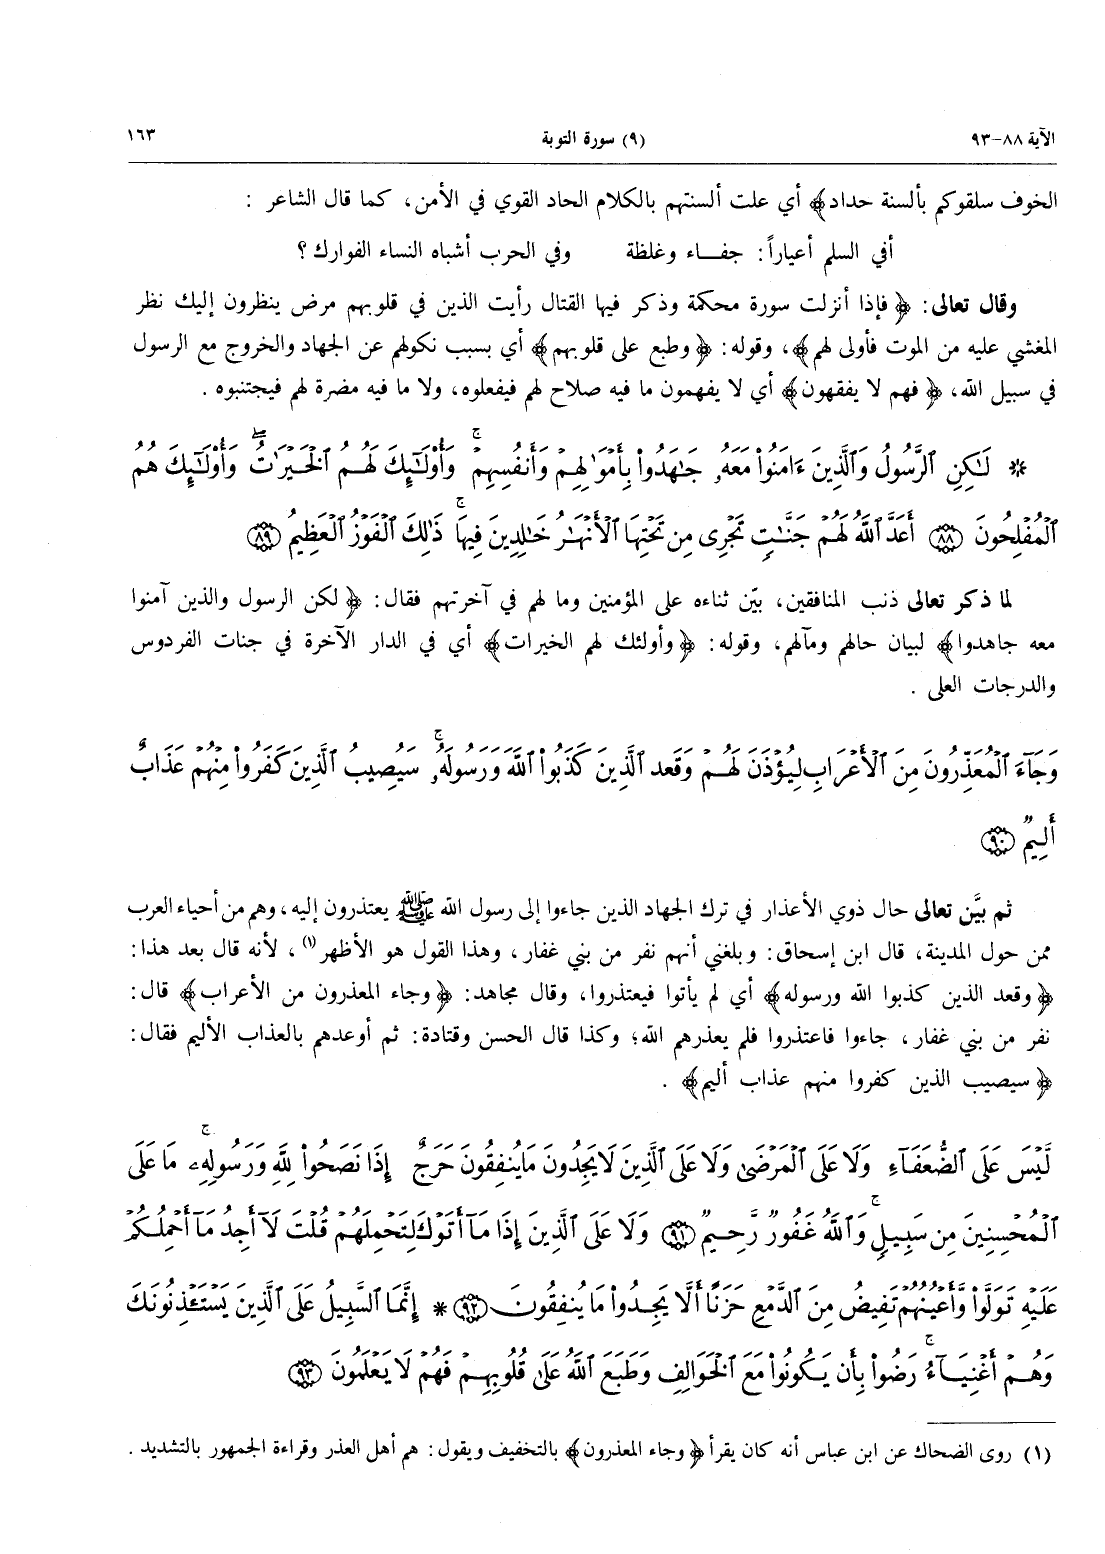 الآية ٨٨-٩٣ (٩) سورة التوبة ١٦٣
الخوف سلقوكم بألسنة حداد﴾ أي علت ألسنتهم بالكلام الحاد القوي في الأمن، كما قال الشاعر :
أفي السلم أعياراً: جفـــاء وغلظة وفي الحرب أشباه النساء الفوارك؟
وقال تعالى: ﴿فإذا أنزلت سورة محكمة وذكر فيها القتال رأيت الذين في قلوبهم مرض ينظرون إليك نظر
المغشي عليه من الموت فأولى لهم﴾، وقوله: ﴿وطبع على قلوبهم﴾ أي بسبب نكولهم عن الجهاد والخروج مع الرسول
في سبيل الله، ﴿فهم لا يفقهون﴾ أي لا يفهمون ما فيه صلاح لهم فيفعلوه، ولا ما فيه مضرة لهم فيجتنبوه .
* لَـٰكِنِ ٱلرَّسُولُ وَٱلَّذِينَ ءَامَنُوا۟ مَعَهُۥ جَـٰهَدُوا۟ بِأَمْوَٰلِهِمْ وَأَنفُسِهِمْ ۚ وَأُو۟لَـٰٓئِكَ لَهُمُ ٱلْخَيْرَٰتُ ۖ وَأُو۟لَـٰٓئِكَ هُمُ
ٱلْمُفْلِحُونَ ﴿٨٨﴾ أَعَدَّ ٱللَّهُ لَهُمْ جَنَّـٰتٍ تَجْرِى مِن تَحْتِهَا ٱلْأَنْهَـٰرُ خَـٰلِدِينَ فِيهَا ۚ ذَٰلِكَ ٱلْفَوْزُ ٱلْعَظِيمُ ﴿٨٩﴾
لما ذكر تعالى ذنب المنافقين، بيّن ثناءه على المؤمنين وما لهم في آخرتهم فقال: ﴿لكن الرسول والذين آمنوا
معه جاهدوا﴾ لبيان حالهم ومآلهم، وقوله: ﴿وأولئك لهم الخيرات﴾ أي في الدار الآخرة في جنات الفردوس
والدرجات العلى .
وَجَآءَ ٱلْمُعَذِّرُونَ مِنَ ٱلْأَعْرَابِ لِيُؤْذَنَ لَهُمْ وَقَعَدَ ٱلَّذِينَ كَذَبُوا۟ ٱللَّهَ وَرَسُولَهُۥ ۚ سَيُصِيبُ ٱلَّذِينَ كَفَرُوا۟ مِنْهُمْ عَذَابٌ
أَلِيمٌ ﴿٩٠﴾
ثم بيَّن تعالى حال ذوي الأعذار في ترك الجهاد الذين جاءوا إلى رسول الله ﷺ يعتذرون إليه، وهم من أحياء العرب
ممن حول المدينة، قال ابن إسحاق: وبلغني أنهم نفر من بني غفار، وهذا القول هو الأظهر(١)، لأنه قال بعد هذا:
﴿وقعد الذين كذبوا الله ورسوله﴾ أي لم يأتوا فيعتذروا، وقال مجاهد: ﴿وجاء المعذرون من الأعراب﴾ قال:
نفر من بني غفار، جاءوا فاعتذروا فلم يعذرهم الله؛ وكذا قال الحسن وقتادة: ثم أوعدهم بالعذاب الأليم فقال:
﴿سيصيب الذين كفروا منهم عذاب أليم﴾ .
لَّيْسَ عَلَى ٱلضُّعَفَآءِ وَلَا عَلَى ٱلْمَرْضَىٰ وَلَا عَلَى ٱلَّذِينَ لَا يَجِدُونَ مَا يُنفِقُونَ حَرَجٌ إِذَا نَصَحُوا۟ لِلَّهِ وَرَسُولِهِۦ ۚ مَا عَلَى
ٱلْمُحْسِنِينَ مِن سَبِيلٍ ۚ وَٱللَّهُ غَفُورٌ رَّحِيمٌ ﴿٩١﴾ وَلَا عَلَى ٱلَّذِينَ إِذَا مَآ أَتَوْكَ لِتَحْمِلَهُمْ قُلْتَ لَآ أَجِدُ مَآ أَحْمِلُكُمْ
عَلَيْهِ تَوَلَّوا۟ وَّأَعْيُنُهُمْ تَفِيضُ مِنَ ٱلدَّمْعِ حَزَنًا أَلَّا يَجِدُوا۟ مَا يُنفِقُونَ ﴿٩٢﴾ * إِنَّمَا ٱلسَّبِيلُ عَلَى ٱلَّذِينَ يَسْتَـْٔذِنُونَكَ
وَهُمْ أَغْنِيَآءُ ۚ رَضُوا۟ بِأَن يَكُونُوا۟ مَعَ ٱلْخَوَالِفِ وَطَبَعَ ٱللَّهُ عَلَىٰ قُلُوبِهِمْ فَهُمْ لَا يَعْلَمُونَ ﴿٩٣﴾
(١) روى الضحاك عن ابن عباس أنه كان يقرأ ﴿وجاء المعذرون﴾ بالتخفيف ويقول: هم أهل العذر وقراءة الجمهور بالتشديد .